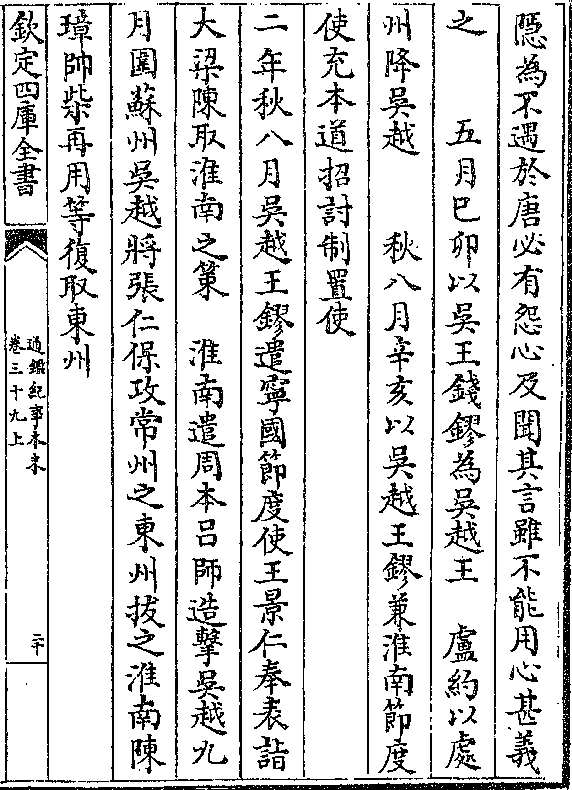 隱為不遇於唐必有怨心及聞其言雖不能用心甚義
之　五月己卯以吳王錢鏐為吳越王　盧約以處
州降吳越　秋八月辛亥以吳越王鏐兼淮南節度
使充本道招討制置使
二年秋八月吳越王鏐遣寧國節度使王景仁奉表詣
大梁陳取淮南之策　淮南遣周本吕師造擊吳越九
月圍蘇州吳越將張仁保攻常州之東州拔之淮南陳
璋帥柴再用等復取東州
欽定四庫全書
通鑑紀事本末
卷三十九上
二十